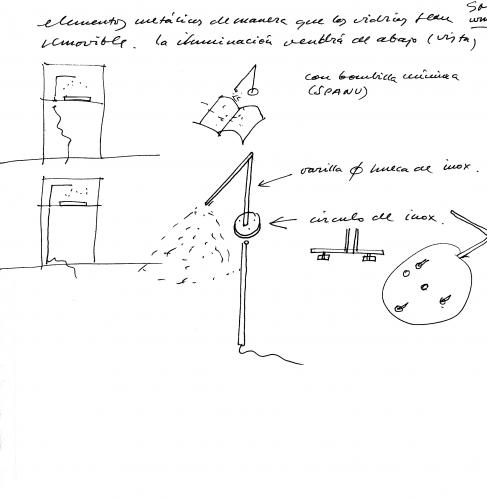 elementos metálicos de manera que los vidrios sean
removible. la iluminación vendrá de abajo (vista)
con bombilla mínima
(SPANU)
varilla ϕ hueca de inox.
círculo de inox.